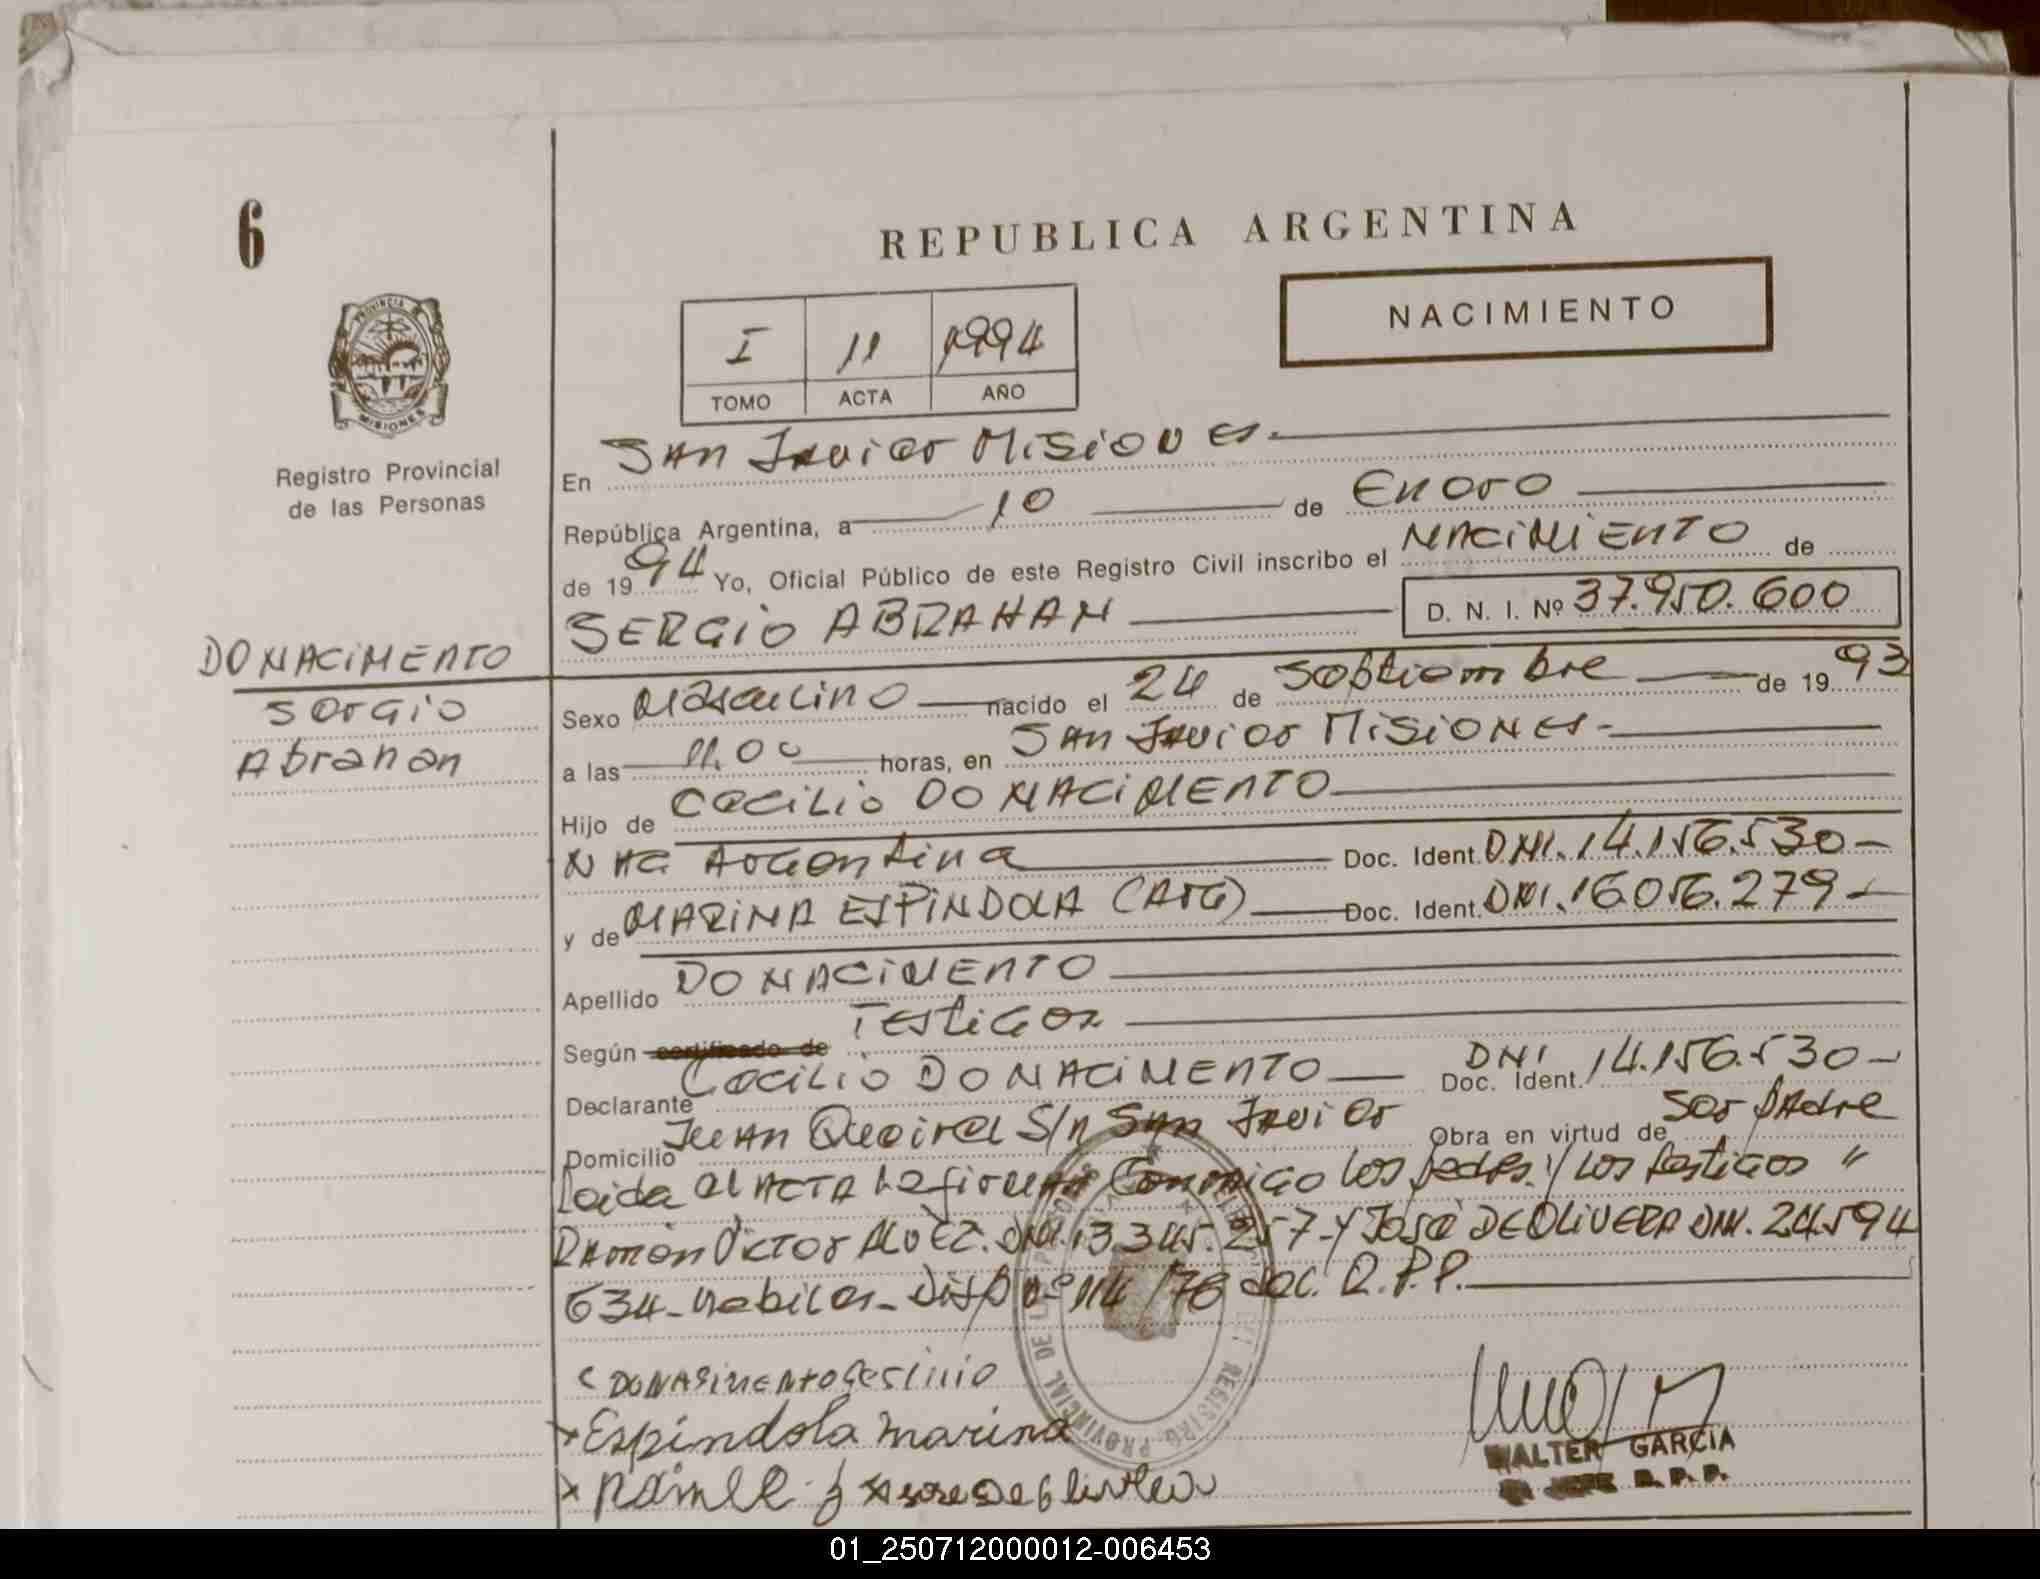 6
REPUBLICA ARGENTINA
NACIMIENTO
I 11 1994
TOMO ACTA AÑO
PROVINCIA
MISIONES
Registro Provincial
de las Personas
En San Javier Misiones.
República Argentina, a 10 de Enero
de 1994 Yo, Oficial Público de este Registro Civil inscribo el NACIMIENTO de
SERGIO ABRAHAN D. N. I. Nº 37.950.600
DO NACIMENTO
Sergio
Abrahan
Sexo Masculino nacido el 24 de Septiembre de 1993
a las 11.00 horas, en San Javier Misiones-
Hijo de Cecilio DO NACIMENTO
NAC Argentina Doc. Ident. DNI. 14.156.530-
y de MARINA ESPINDOLA (ARG) Doc. Ident. DNI. 16.056.279-
Apellido DO NACIMENTO
Según certificado de Testigos
Declarante Cecilio DO NACIMENTO DNI Doc. Ident. 14.156.530-
Domicilio Juan Queirel S/n San Javier Obra en virtud de Ser Padre
Leida el ACTA la firman Conmigo los padres. y los testigos "
Ramón Victor DNI. 13.345.257-y José DE OLIVERA DNI. 24.594
634- habiles- Disp nº 114/78 del R.P.P.
DONASIMENTO Cesinio
x Espindola marina
x
REGISTRO PROVINCIAL DE LAS PERSONAS
WALTER GARCIA
R. P. P.
01_250712000012-006453